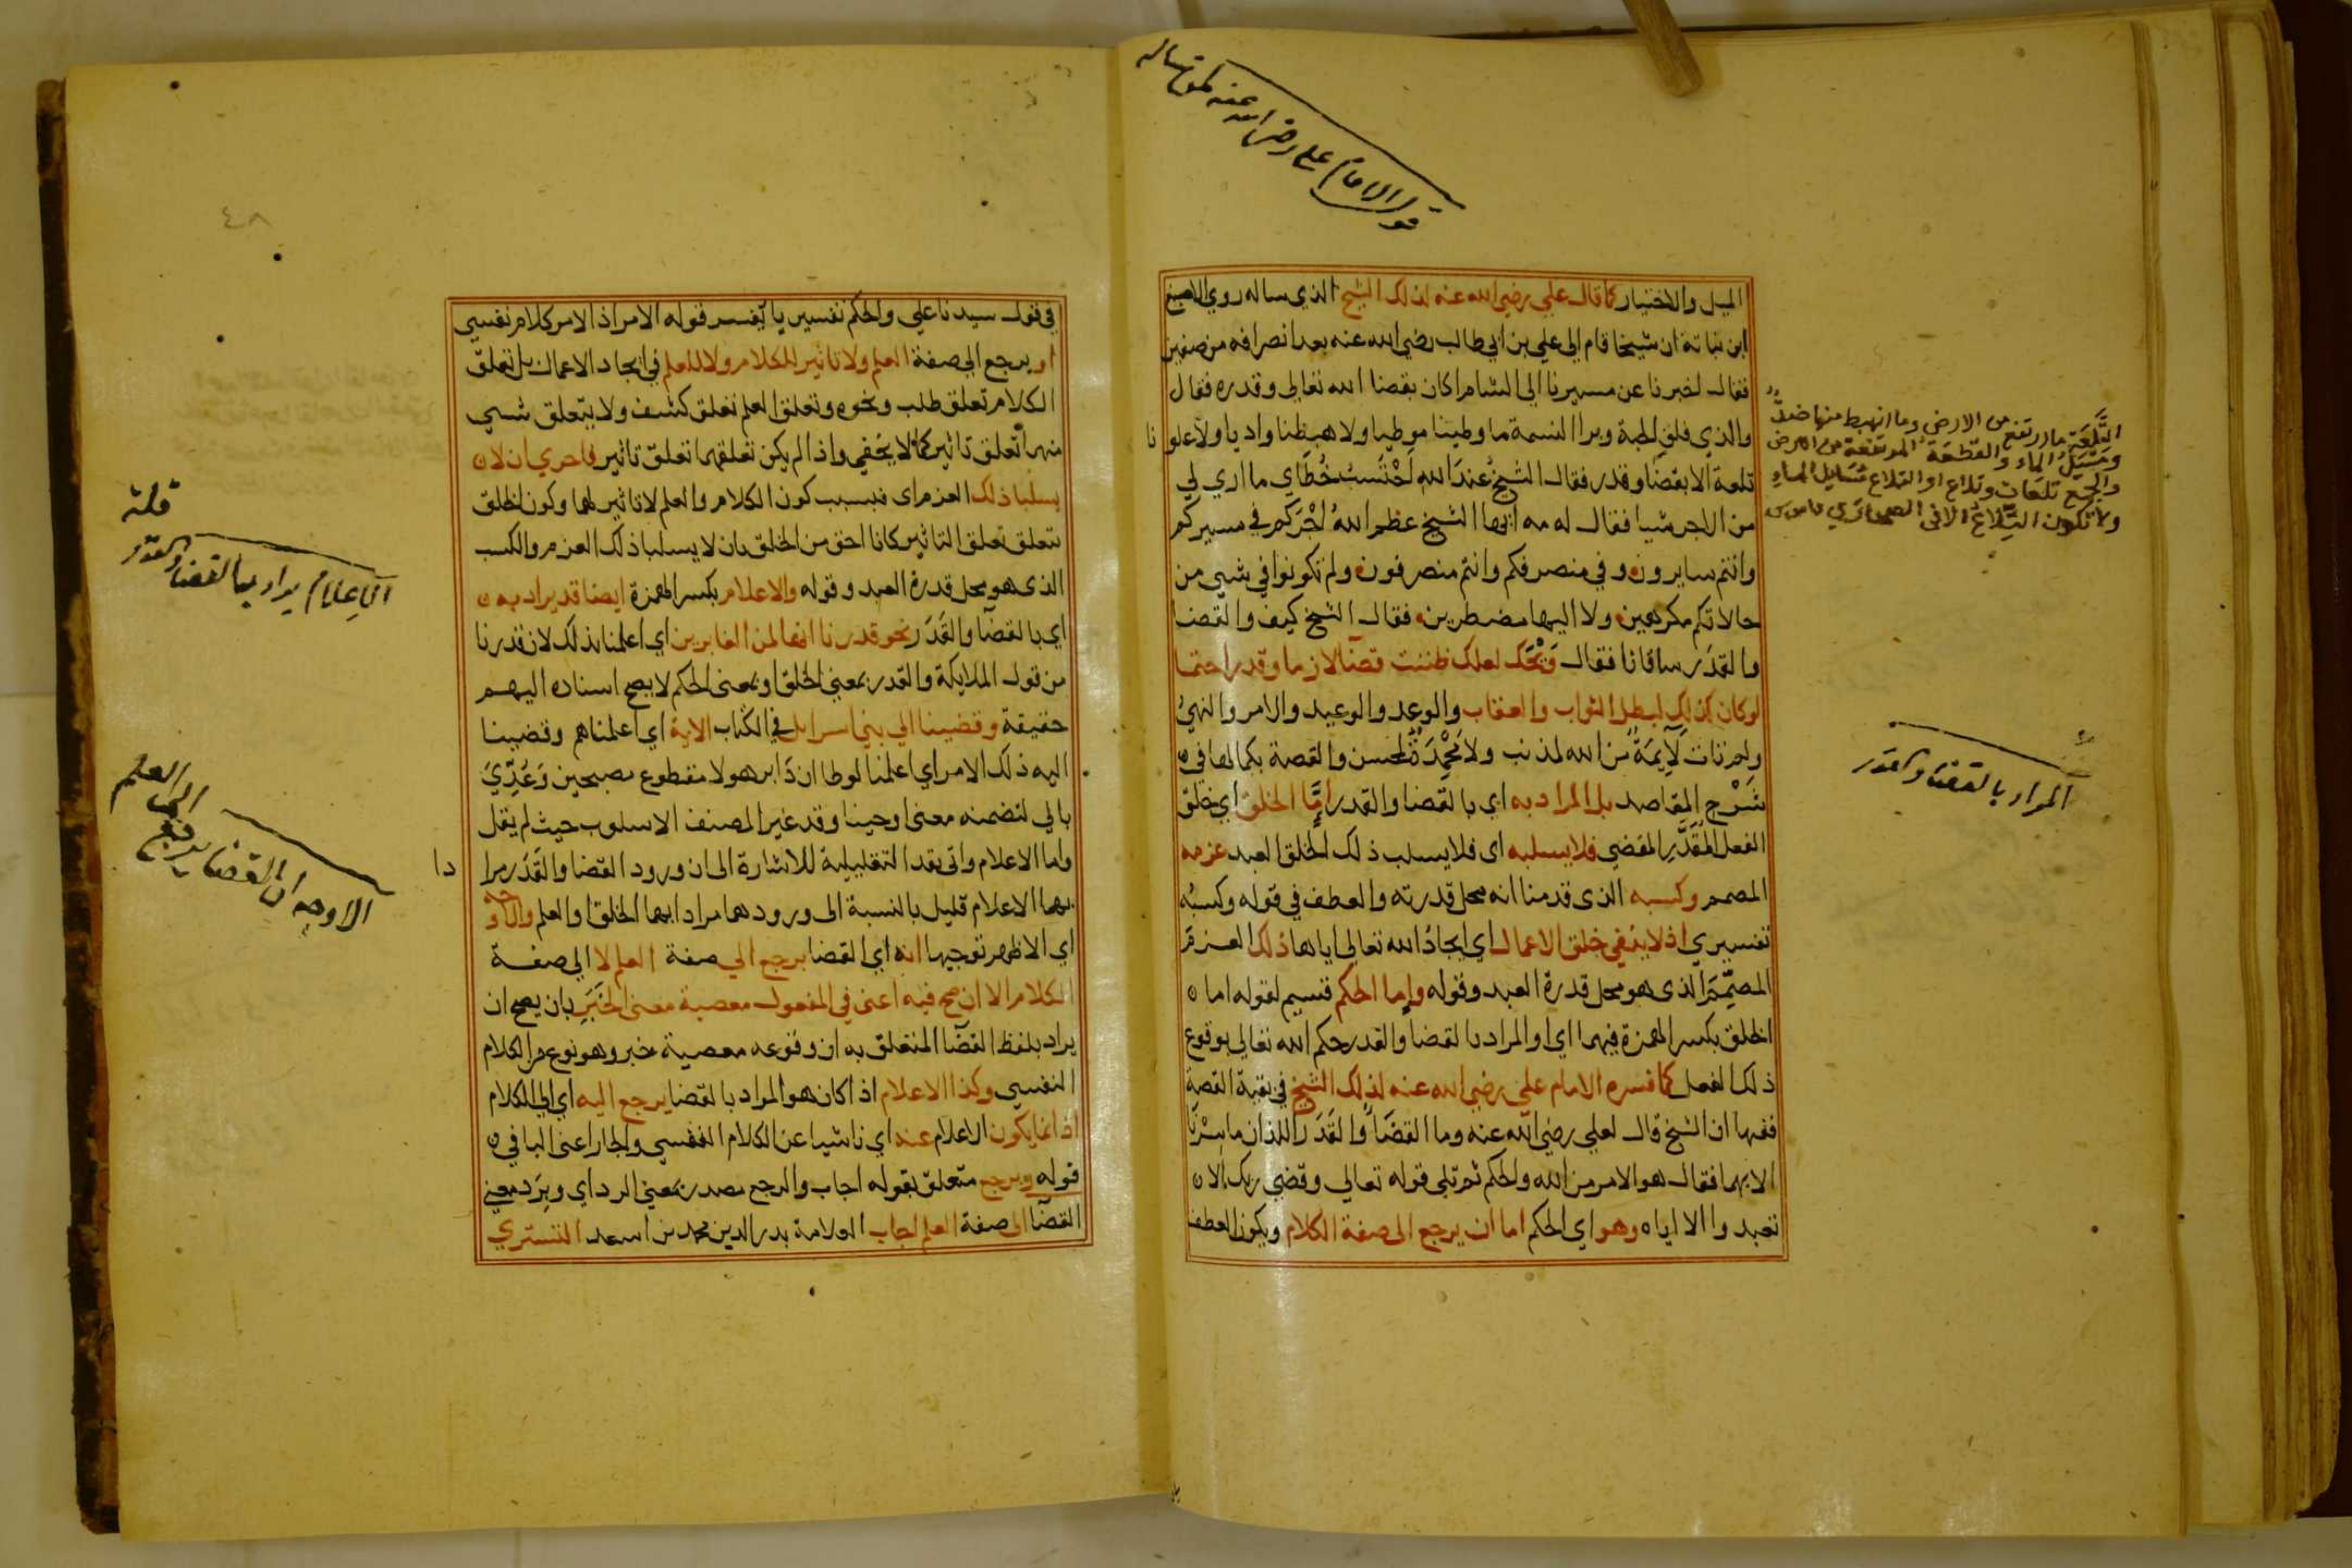 قول الامام علي رضي الله عنه لمن ساله
الميل والاختيار كما قال علي رضي الله عنه لذلك الشيخ الذي ساله روي الاصبغ
ابن نباتة ان شيخا قام الي علي بن ابي طالب رضي الله عنه بعد انصرافه من صفين
فقال اخبرنا عن مسيرنا الي الشام اكان بقضا الله تعالي وقدره فقال
والذي فلق الحبة وبرا النسمة ما وطينا موطيا ولا هبطنا واديا ولا علونا
تلعة الا بقضا وقدر فقال الشيخ عند الله احتسب خطاي ما اري لي
من الاجر شيا فقال له مه ايها الشيخ عظم الله اجركم في مسيركم
وانتم سايرون وفي منصرفكم وانتم منصرفون ولم تكونوا في شيي من
حالاتكم مكرهين ولا اليها مضطرين فقال الشيخ كيف والقضا
والقدر ساقانا فقال ويحك لعلك ظننت قضا لازما وقدرا حتما
لو كان كذلك لبطل الثواب والعقاب والوعد والوعيد والامر والنهي
ولم تات لايمة من الله لمذنب ولا محمدة لمحسن والقصة بكمالها في
شرح المقاصد بل المراد به اي بالقضا والقدر اما الخلق اي خلق
الفعل المقدر المقضي فلا يسلبه اى فلا يسلب ذلك الخلق العبد عزمه
المصمم وكسبه الذى قدمنا انه محل قدرته والعطف في قوله وكسبه
تفسيري اذ لا ينفي خلق الاعمال اي ايجاد الله تعالي اياها ذلك العزم
المصمم الذى هو محل قدرة العبد وقوله واما الحكم قسيم لقوله اما
الخلق بكسر الهمزة فيهما اي او المراد بالقضا والقدر حكم الله تعالي بوقوع
ذلك الفعل كما فسره الامام علي رضي الله عنه لذلك الشيخ في بقية القصة
ففيها ان الشيخ قال لعلي رضي الله عنه وما القضا والقدر اللذان ما سرنا
الا بهما فقال هو الامر من الله والحكم ثم تلي قوله تعالي وقضي ربك الا
تعبدوا الا اياه وهو اي الحكم اما ان يرجع الى صفة الكلام ويكون العطف
التلعة ما ارتفع من الارض وما انهبط منها ضد
ومسيل الماء والقطعة المرتفعة من الارض
والجمع تلعات وتلاع او التلاع مسايل الماء
ولا تكون التلاع الا في الصحاري قاموس
المراد بالقضا والقدر
٤٨
في قول سيدنا علي والحكم تفسيريا يفسر قوله الامر اذ الامر كلام نفسي
او يرجع الي صفة العلم ولا تاثير للكلام ولا للعلم في ايجاد الاعمال بل تعلق
الكلام تعلق طلب ونحوه وتعلق العلم تعلق كشف ولا يتعلق شيي
منهما تعلق تاثير كما لا يخفي واذا لم يكن تعلقهما تعلق تاثير فاحري ان لا
يسلبا ذلك العزم اى فبسبب كون الكلام والعلم لا تاثير لهما وكون الخلق
يتعلق تعلق التاثير كانا احق من الخلق بان لا يسلبا ذلك العزم والكسب
الذى هو محل قدرة العبد وقوله والاعلام بكسر الهمزة ايضا قد يراد به
اي بالقضا والقدر نحو قدرنا انها لمن الغابرين اي اعلمنا بذلك لان قدرنا
من قول الملايكة والقدر بمعني الخلق او بمعنى الحكم لا يصح اسناده اليهم
حقيقة وقضينا الي بني اسرايل في الكتاب الاية اي اعلمناهم وقضينا
اليه ذلك الامر اي اعلمنا لوطا ان دابر هولا مقطوع مصبحين وعدي
بالي لتضمنه معنى اوحينا وقد غير المصنف الاسلوب حيث لم يقل
واما الاعلام واتي بقد التقليلية للاشارة الى ان ورود القضا والقدر مرادا
بهما الاعلام قليل بالنسبة الى ورودهما مرادا بهما الخلق او العلم والاوجه
اي الاظهر توجيها انه اي القضا يرجع الي صفة العلم لا الي صفة
الكلام الا ان صح فيه اعنى في المفعول معصية معنى الخبر بان يصح ان
يراد بلفظ القضا المتعلق به ان وقوعه معصية خبر وهو نوع من الكلام
النفسي وكذا الاعلام اذا كان هو المراد بالقضا يرجع اليه اي الي الكلام
اذ انما يكون الاعلام عنه اي ناشيا عن الكلام النفسي والجار اعنى البا في
قوله وبرجع متعلق بقوله اجاب والرجع مصدر بمعني الرد اي وبرد معنى
القضا الى صفة العلم اجاب العلامة بدر الدين محمد بن اسعد التستري
قلته
الاعلام يراد بها القضا والقدر
الاوجه ان القضا يرجع الي العلم